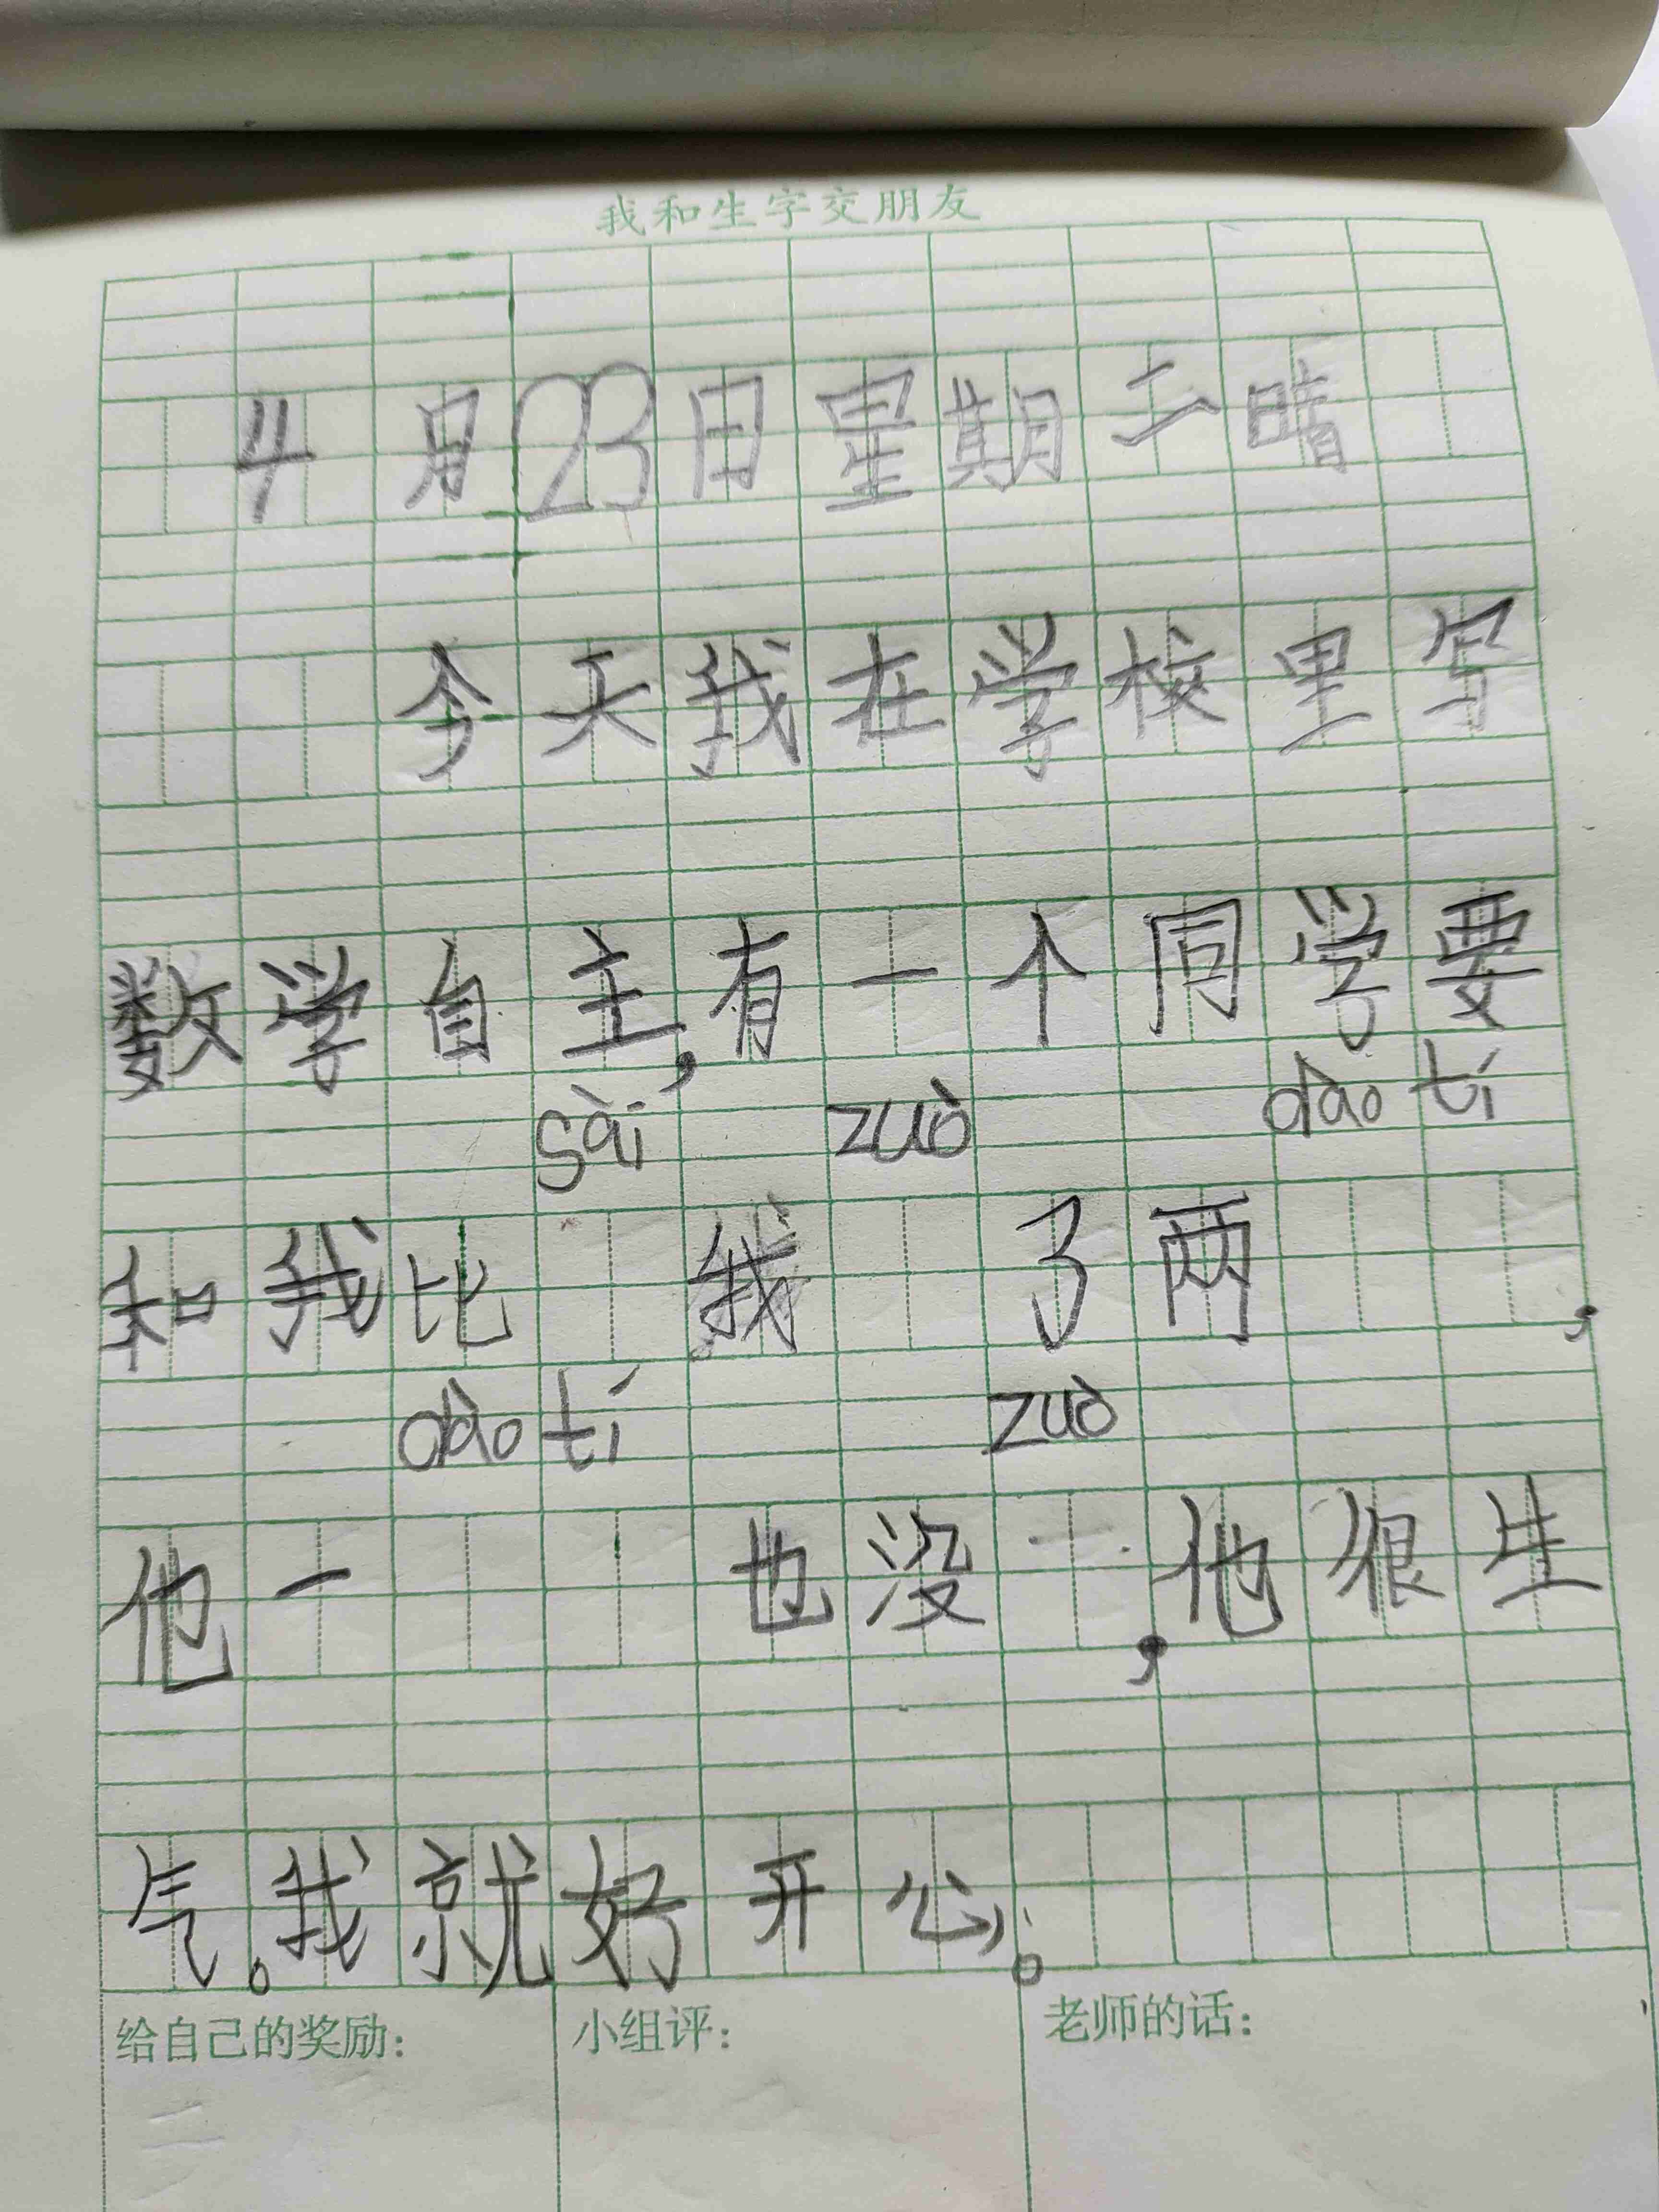 我和生字交朋友
4月23日星期二晴
今天我在学校里写
数学自主,有一个同学要
sài zuò dào tí
和我比 我 了两 ,
dào tí zuò
他一 也没 ,他很生
气。我就好开心。
给自己的奖励: 小组评: 老师的话: